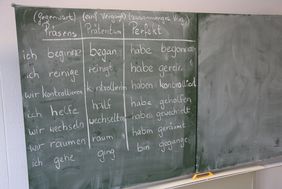 (Gegenwart) (einf. Vergang.) (zusammenges. Verg.)
Präsens Präteritum Perfekt
ich beginne began habe begonnen
ich reinige reinigt habe gerei
wir kontrollieren kontrollierten haben kontrolliert
ich helfe half habe geholfen
wir wechseln wechselten haben gewechselt
wir räumen räum haben geräumt
ich gehe ging bin gegangen